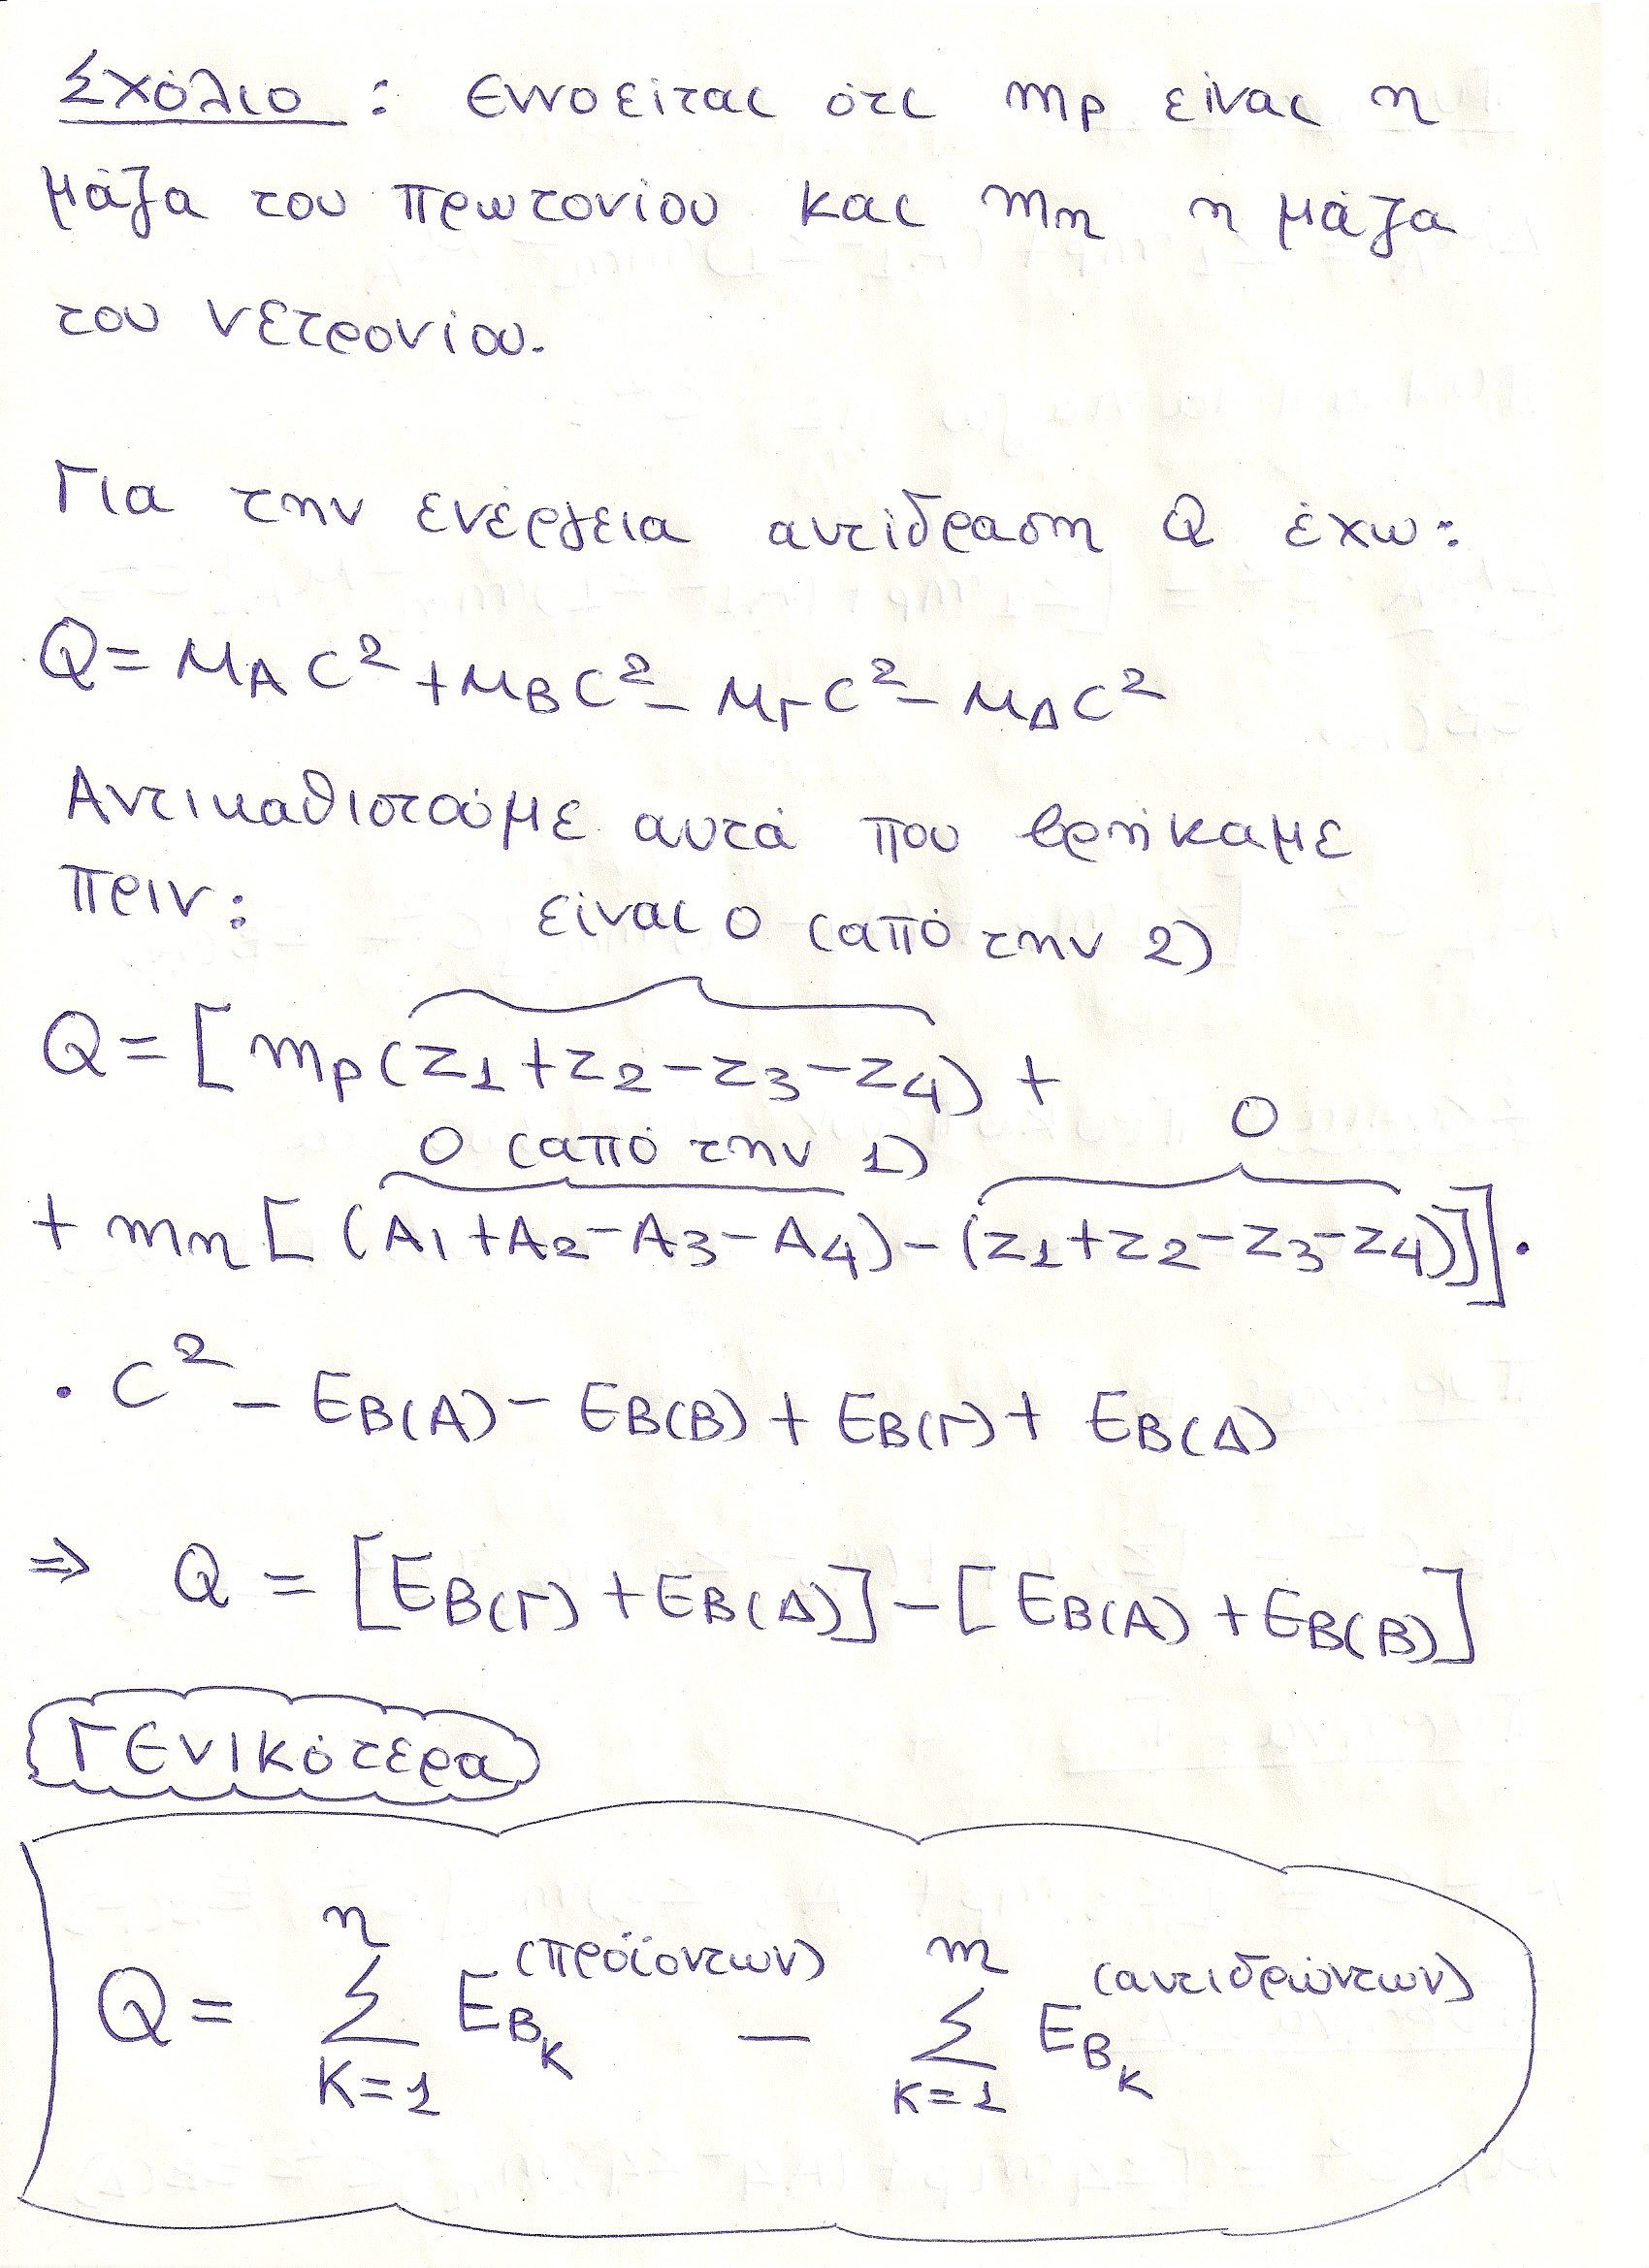 Σχόλιο : Εννοείται ότι mp είναι η
μάζα του πρωτονίου και mn η μάζα
του νετρονίου.
Για την ενέργεια αντίδραση Q έχω:
Q = M_A C² + M_B C² - M_Γ C² - M_Δ C²
Αντικαθιστούμε αυτά που βρήκαμε
πριν:
είναι 0 (από την 2)
Q = [mp(Z1+Z2-Z3-Z4) +
0 (από την 1) 0
+ mn[(A1+A2-A3-A4)-(Z1+Z2-Z3-Z4)]] ·
· C² - E_B(A) - E_B(B) + E_B(Γ) + E_B(Δ)
⇒ Q = [E_B(Γ) + E_B(Δ)] - [E_B(A) + E_B(B)]
Γενικότερα
Q = Σ_{K=1}^{n} E_{B_K}^{(προϊόντων)} - Σ_{K=1}^{m} E_{B_K}^{(αντιδρώντων)}